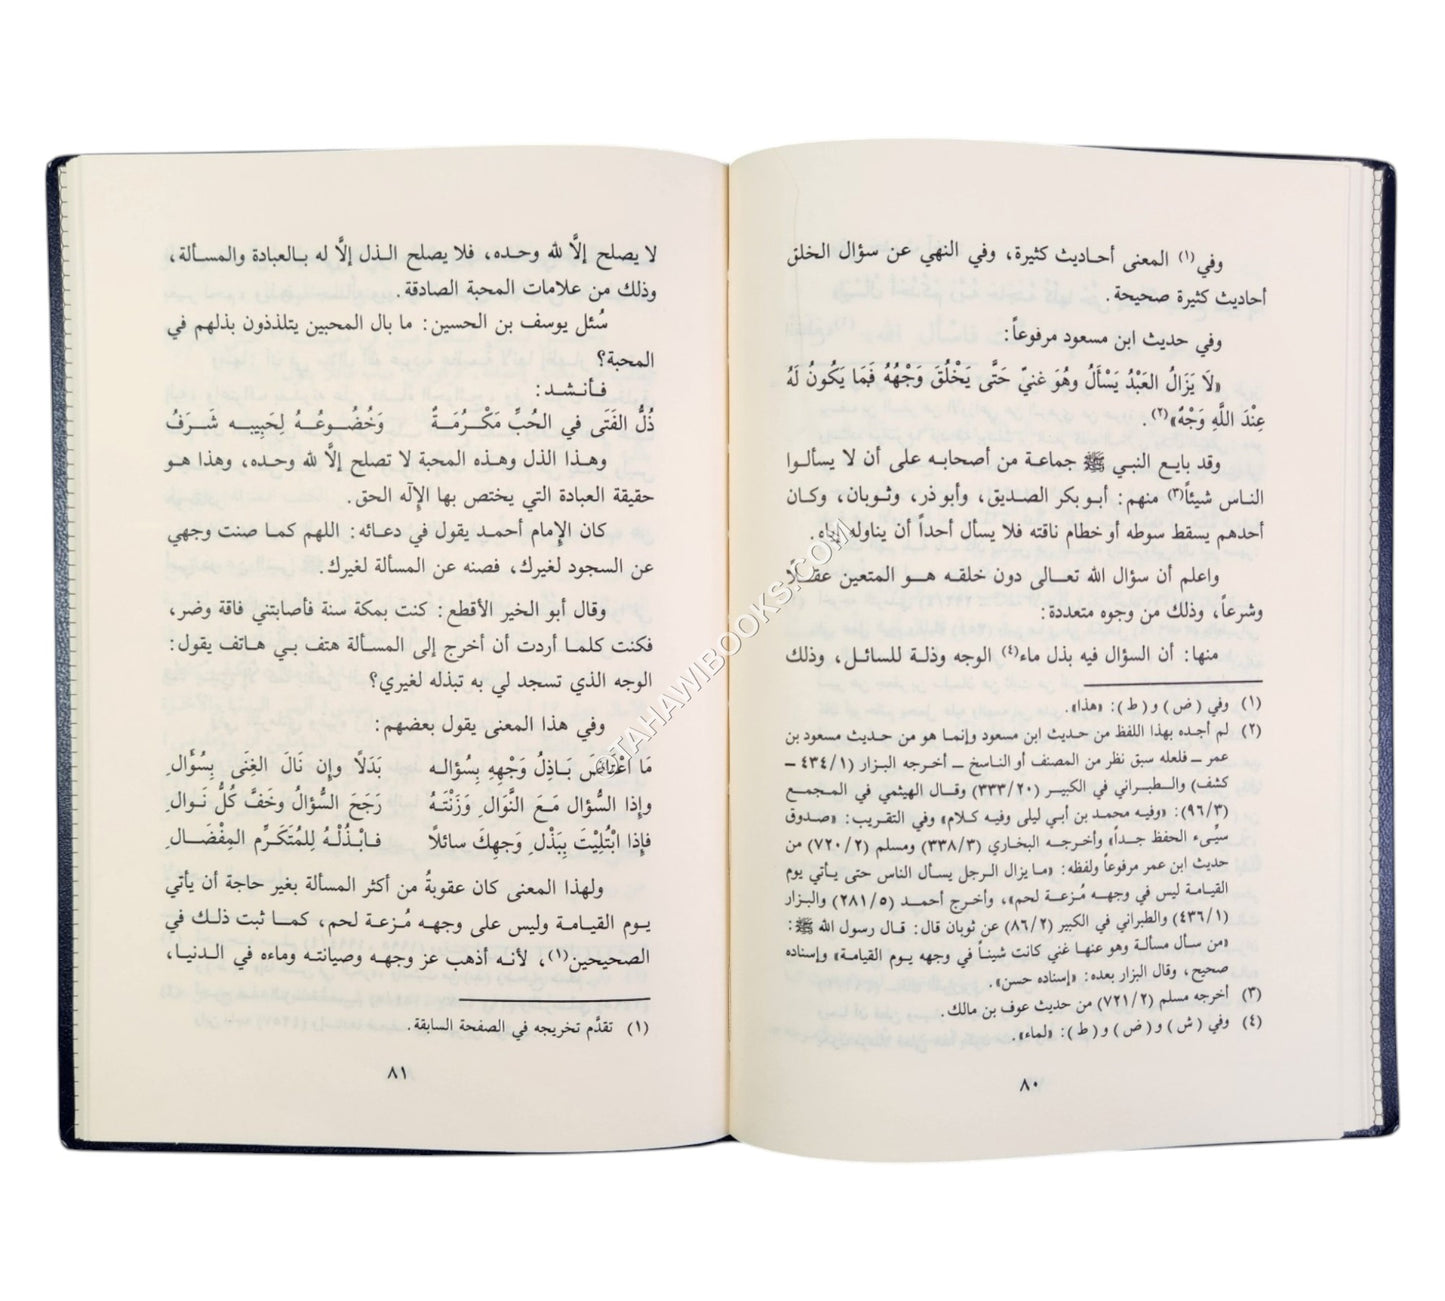 وفي(١) المعنى أحاديث كثيرة، وفي النهي عن سؤال الخلق
أحاديث كثيرة صحيحة.
وفي حديث ابن مسعود مرفوعاً:
«لَا يَزَالُ العَبْدُ يَسْأَلُ وهُوَ غنيٌ حَتَّى يَخْلُقَ وَجْهُهُ فَمَا يَكُونُ لَهُ
عِنْدَ اللَّهِ وَجْهٌ»(٢).
وقد بايع النبي ﷺ جماعة من أصحابه على أن لا يسألوا
الناس شيئاً(٣) منهم: أبو بكر الصديق، وأبو ذر، وثوبان، وكان
أحدهم يسقط سوطه أو خطام ناقته فلا يسأل أحداً أن يناوله إياه.
واعلم أن سؤال الله تعالى دون خلقه هو المتعين عقلًا
وشرعاً، وذلك من وجوه متعددة:
منها: أن السؤال فيه بذل ماء(٤) الوجه وذلة للسائل، وذلك
(١) وفي (ض) و (ط): «هذا».
(٢) لم أجده بهذا اللفظ من حديث ابن مسعود وإنما هو من حديث مسعود بن
عمر ــ فلعله سبق نظر من المصنف أو الناسخ ــ أخرجه البزار (١/٤٣٤ ــ
كشف) والطبراني في الكبير (٢٠/٣٣٣) وقال الهيثمي في المجمع
(٣/٩٦): «وفيه محمد بن أبي ليلى وفيه كلام» وفي التقريب: «صدوق
سيِّىء الحفظ جداً» وأخرجه البخاري (٣/٣٣٨) ومسلم (٢/٧٢٠) من
حديث ابن عمر مرفوعاً ولفظه: «ما يزال الرجل يسأل الناس حتى يأتي يوم
القيامة ليس في وجهه مُزعة لحم»، وأخرج أحمد (٥/٢٨١) والبزار
(١/٤٣٦) والطبراني في الكبير (٢/٨٦) عن ثوبان قال: قال رسول الله ﷺ:
«من سأل مسألة وهو عنها غني كانت شيناً في وجهه يوم القيامة» وإسناده
صحيح، وقال البزار بعده: «إسناده حسن».
(٣) أخرجه مسلم (٢/٧٢١) من حديث عوف بن مالك.
(٤) وفي (ش) و (ض) و (ط): «لماء».
٨٠
لا يصلح إلَّا لله وحده، فلا يصلح الذل إلَّا له بالعبادة والمسألة،
وذلك من علامات المحبة الصادقة.
سُئل يوسف بن الحسين: ما بال المحبين يتلذذون بذلهم في
المحبة؟
فأنشد:
ذُلُّ الفَتَى في الحُبِّ مَكْرُمَةٌ وَخُضُوعُهُ لِحَبِيبِه شَرَفُ
وهذا الذل وهذه المحبة لا تصلح إلَّا لله وحده، وهذا هو
حقيقة العبادة التي يختص بها الإِلَه الحق.
كان الإِمام أحمد يقول في دعائه: اللهم كما صنت وجهي
عن السجود لغيرك، فصنه عن المسألة لغيرك.
وقال أبو الخير الأقطع: كنت بمكة سنة فأصابتني فاقة وضر،
فكنت كلما أردت أن أخرج إلى المسألة هتف بي هاتف يقول:
الوجه الذي تسجد لي به تبذله لغيري؟
وفي هذا المعنى يقول بعضهم:
مَا اعْتَاضَ بَاذِلُ وَجْهِهِ بِسُؤاله بَدَلًا وإِن نَالَ الغِنَى بِسُؤَالِ
وإذا السُّؤال مَعَ النَّوَالِ وَزَنْتَهُ رَجَحَ السُّؤالُ وخَفَّ كُلُّ نَوالِ
فإِذا ابْتُلِيْتَ بِبَذْلِ وَجهِكَ سائلًا فابْذُلْهُ لِلمُتَكَرِّمِ المِفْضَالِ
ولهذا المعنى كان عقوبةُ من أكثر المسألة بغير حاجة أن يأتي
يوم القيامة وليس على وجهه مُزعة لحم، كما ثبت ذلك في
الصحيحين(١)، لأنه أذهب عز وجهه وصيانته وماءه في الدنيا،
(١) تقدَّم تخريجه في الصفحة السابقة.
٨١
©TAHAWIBOOKS.COM